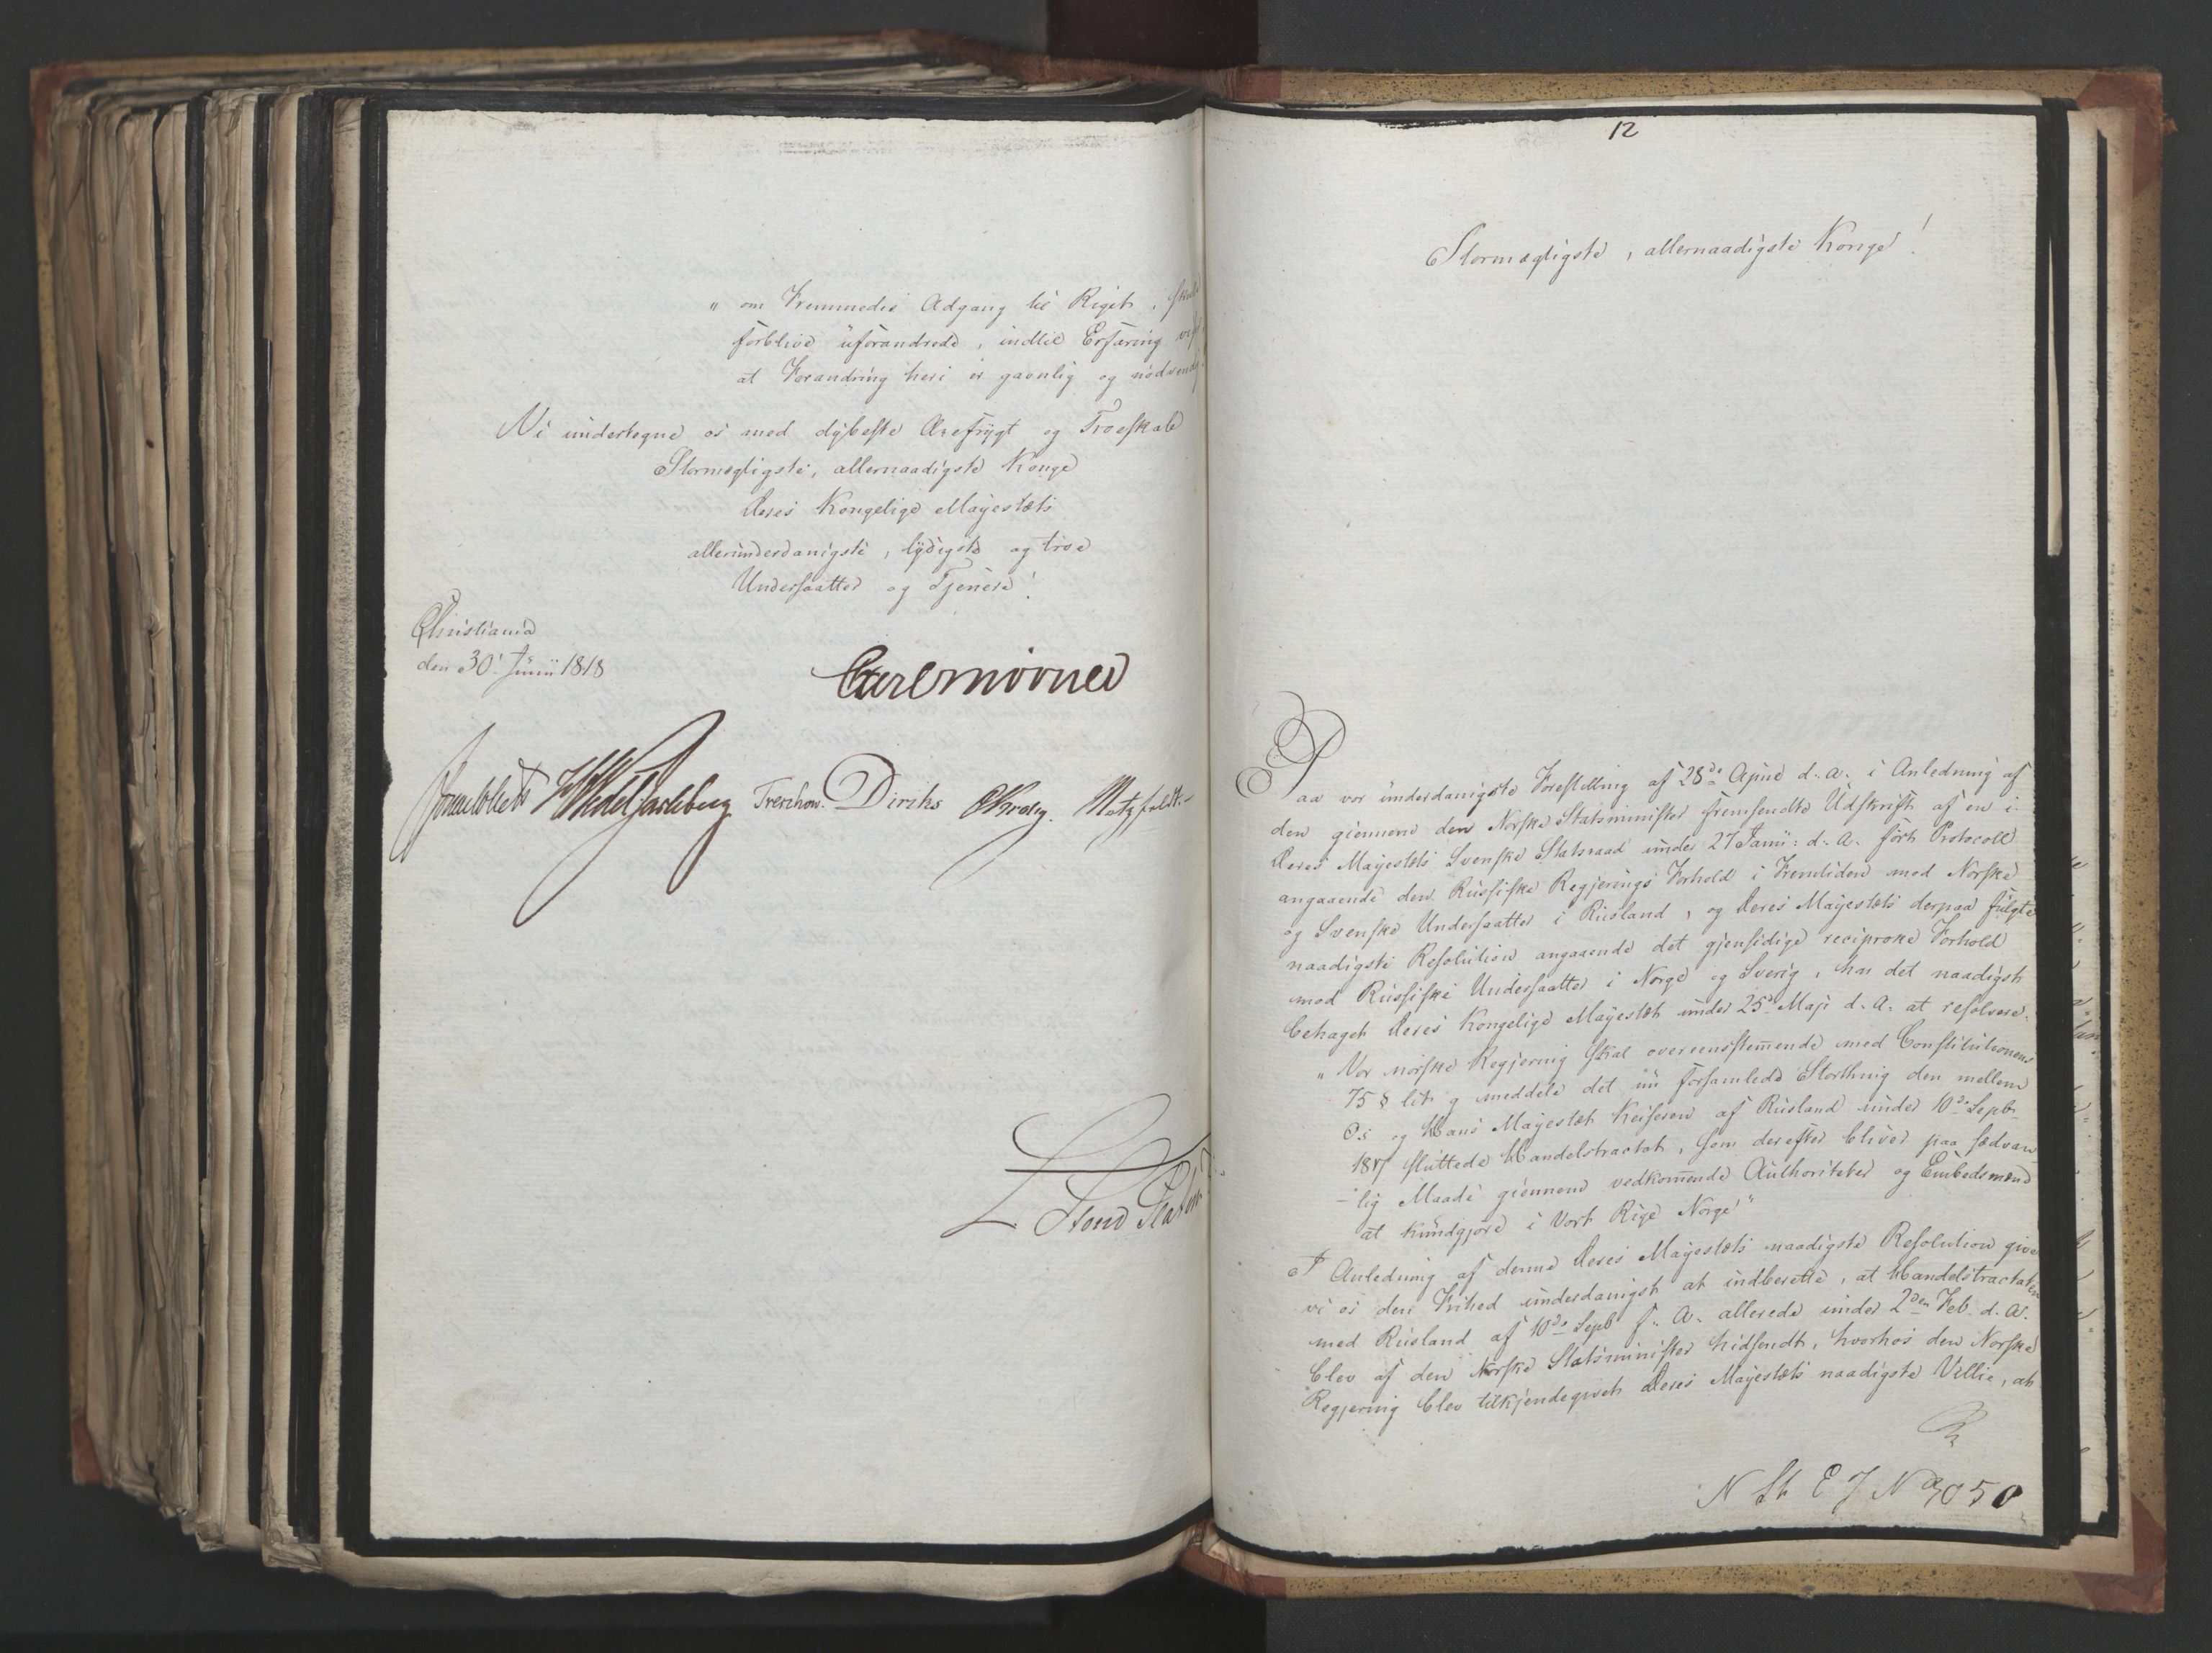 " om Fremmedes Adgang til Riget, skulle
forblive uforandrede, indtil Erfaring
at Forandring heri er gavnlig og nødvendig
Vi undertegne os med dybeste Ærefrygt og Troeskab
Stormægtigste, allernaadigste Konge
Deres Kongelige Majestæts
allerunderdanigste, lydigste og troe
Undersaatter og Tjenere!
Christiania
den 30' Junii 1818
Carl Mörner
Sommerhielm HWedel Jarlsberg Treschow. Diriks CKrohg. Motzfeldt.
12
Stormægtigste, allernaadigste Konge!
Paa vor underdanigste Forestilling af 28de April d. A. i Anledning af
den giennem den Norske Statsminister fremsendte Udskrift af en i
Deres Majestæts Svenske Statsraad under 27 Janu: d. A. ført Protocoll
angaaende den Russiske Regjerings Forhold i Fremtiden mod Norske
og Svenske Undersaatter i Rusland, og Deres Majestæts derpaa fulgte
naadigste Resolution angaaende det gjensidige reciproke Forhold
mod Russiske Undersaatter i Norge og Sverig, har det naadigst
behaget Deres Kongelige Majestæt under 25' Maji d. A. at resolvere:
" Vor norske Regjering skal overeensstem̄ende med Constitutionens
75 § lit g meddele det nu forsamlede Storthing den mellem
Os og Hans Majestæt Keiseren af Rusland under 10de Septr
1817 sluttede Handelstractat, som derefter bliver paa sædvan
-lig Maade giennem vedkom̄ende Authoriteter og Embedsmænd
at kundgjøre i Vort Rige Norge"
I Anledning af denne Deres Majestæts naadigste Resolution give
vi os den Frihed underdanigst at indberette, at Handelstractaten
med Rusland af 10de Sept f. A. allerede under 2den Feb. d. A.
blev af den Norske Statsminister hidsendt, hvorhos den Norske
Regjering blev tilkjendegivet Deres Majestæts naadigste Villie, at
N St E J No 3050